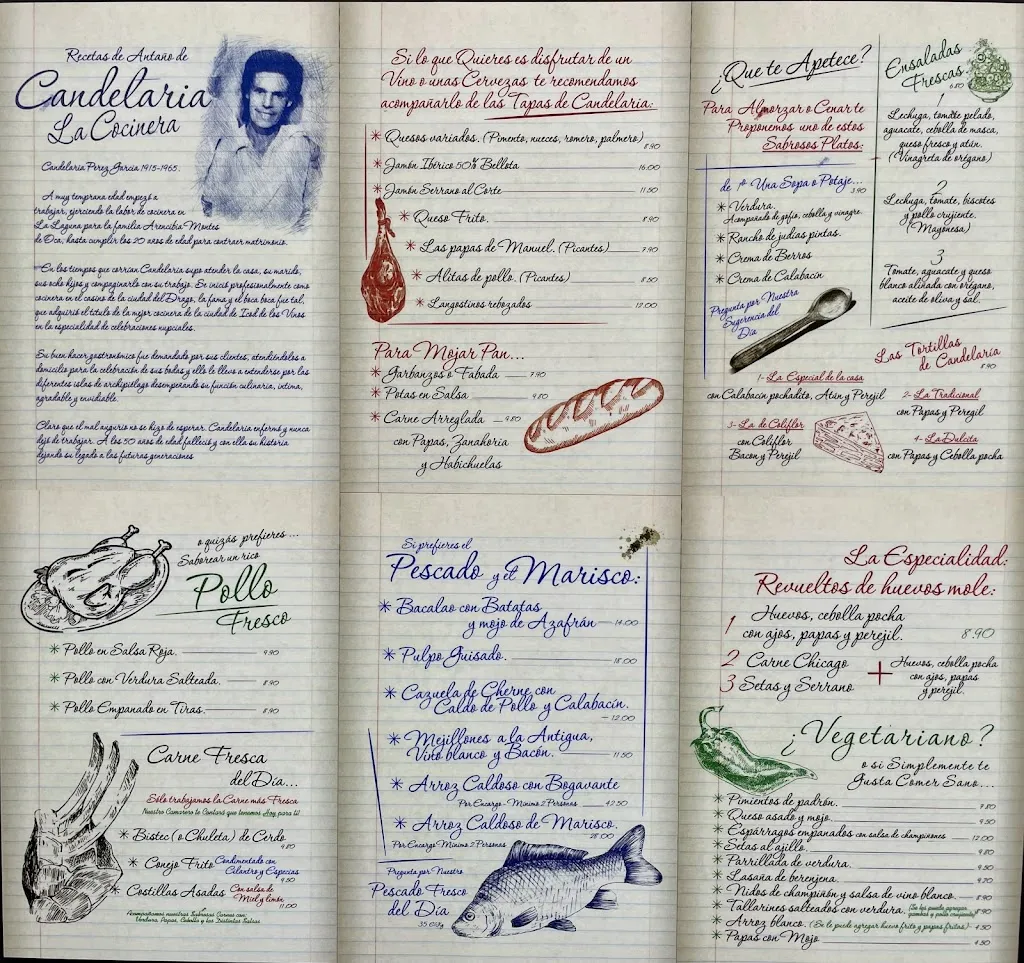 Recetas de Antaño de
Candelaria
La Cocinera
Candelaria Perez Garcia 1915-1965.
A muy temprana edad empezó a
trabajar, ejerciendo la labor de cocinera en
La Laguna para la familia Arencibia Montes
de Oca, hasta cumplir los 20 años de edad para contraer matrimonio.
En los tiempos que corrían Candelaria supo atender la casa, su marido,
sus ocho hijos y compaginarlo con su trabajo. Se inició profesionalmente como
cocinera en el casino de la ciudad del Drago, la fama y el boca boca fue tal,
que adquirió el título de la mejor cocinera de la ciudad de Icod de los Vinos
en la especialidad de celebraciones nupciales.
Su buen hacer gastronómico fue demandado por sus clientes, atendiéndolos a
domicilio para la celebración de sus bodas y ello le llevo a extenderse por las
diferentes islas de archipiélago desempeñando su función culinaria, íntima,
agradable y envidiable.
Claro que el mal augurio no se hizo de esperar. Candelaria enfermó y nunca
dejó de trabajar. A los 50 años de edad falleció y con ella su historia
dejando su legado a las futuras generaciones
Si lo que Quieres es disfrutar de un
Vino o unas Cervezas te recomendamos
acompañarlo de las Tapas de Candelaria:
* Quesos variados. (Pimento, nueces, romero, palmero) 8.90
* Jamón Ibérico 50% Bellota 16.00
* Jamón Serrano al Corte 11.50
* Queso Frito. 8.90
* Las papas de Manuel. (Picantes) 7.90
* Alitas de pollo. (Picantes) 8.50
* Langostinos rebozados 12.00
Para Mojar Pan...
* Garbanzos o Fabada 7.90
* Potas en Salsa 9.80
* Carne Arreglada 9.80
con Papas, Zanahoria
y Habichuelas
¿Que te Apetece?
Para Almorzar o Cenar te
Proponemos uno de estos
Sabrosos Platos:
de 1º Una Sopa o Potaje... 3.90
* Verdura.
Acompañado de gofio, cebolla y vinagre.
* Rancho de judias pintas.
* Crema de Berros
* Crema de Calabacín
Pregunta por Nuestra
Sugerencia del
Día
Ensaladas
Frescas
6.80
1
Lechuga, tomate pelado,
aguacate, cebolla de masca,
queso fresco y atún.
(Vinagreta de orégano)
2
Lechuga, tomate, biscotes
y pollo crujiente.
(Mayonesa)
3
Tomate, aguacate y queso
blanco aliñada con orégano,
aceite de oliva y sal.
Las Tortillas
de Candelaria
8.90
1- La Especial de la casa
con Calabacin pochadito, Atún y Perejil
2- La Tradicional
con Papas y Peregil
3- La de Coliflor
con Coliflor
Bacon y Perejil
4- La Dulcita
con Papas y Cebolla pocha
o quizás prefieres...
Saborear un rico
Pollo
Fresco
* Pollo en Salsa Roja. 9.90
* Pollo con Verdura Salteada. 8.90
* Pollo Empanado en Tiras. 8.90
Carne Fresca
del Día...
Sólo trabajamos la Carne más Fresca
Nuestro Camarero te Contará que tenemos Hoy para tí!
* Bistec (o Chuleta) de Cerdo
9.80
* Conejo Frito Condimentado con
Cilantro y Especias
9.50
* Costillas Asadas Con salsa de
Miel y limón
11.00
Acompañamos nuestras Sabrosas Carnes con:
Verdura, Papas, Cebolla y las Distintas Salsas
Si prefieres el
Pescado y el Marisco:
* Bacalao con Batatas
y mojo de Azafrán 14.00
* Pulpo Guisado. 18.00
* Cazuela de Cherne con
Caldo de Pollo y Calabacín.
12.00
* Mejillones a la Antigua,
Vino blanco y Bacón. 11.50
* Arroz Caldoso con Bogavante
Por Encargo - Mínimo 2 Personas 42.50
* Arroz Caldoso de Marisco.
28.00
Por Encargo - Mínimo 2 Personas
Pregunta por Nuestro
Pescado Fresco
del Día
La Especialidad:
Revueltos de huevos mole:
1 Huevos, cebolla pocha
con ajos, papas y perejil. 8.90
2 Carne Chicago
3 Setas y Serrano
+ Huevos, cebolla pocha
con ajos, papas
y perejil.
¿Vegetariano?
o si Simplemente te
Gusta Comer Sano...
* Pimientos de padrón.
* Queso asado y mojo.
* Espárragos empanados con salsa de champiñones 12.00
* Setas al ajillo
* Parrillada de verdura.
* Lasaña de berenjena.
* Nidos de champiñón y salsa de vino blanco.
* Tallarines salteados con verdura.
* Arroz blanco. (Se le puede agregar huevo frito y papas fritas)
* Papas con Mojo